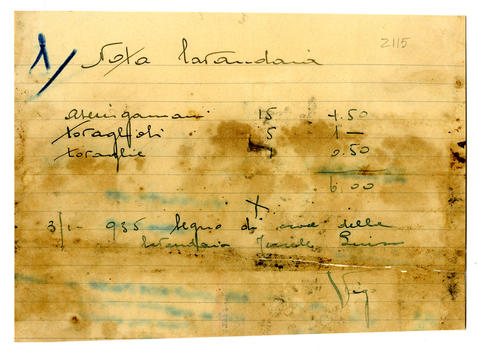 2115
1/ Nota lavandaia
asciugamani 15 4.50
tovaglioli 5 1 —
tovaglie 0.50
6.00
X
3/1 - 935 Segno di croce della
lavandaia